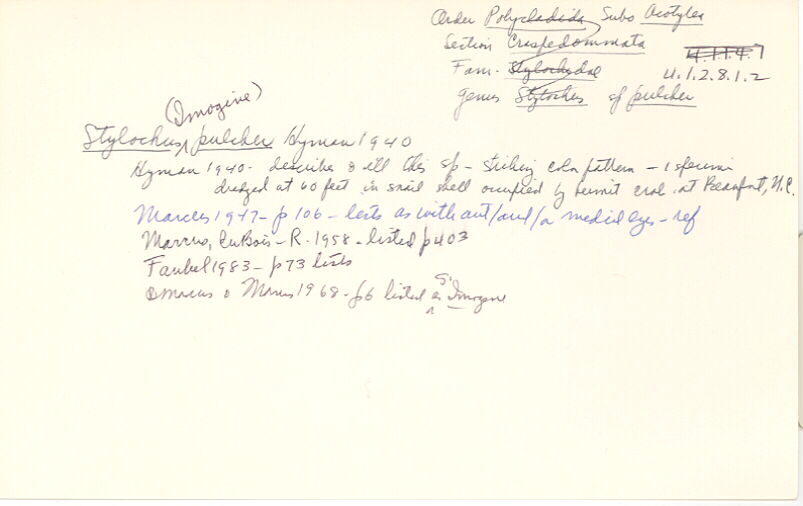 Order Polycladida Subo Acotylea
Section Craspedommata
4.1.1.4.7
Fam. Stylochidae 4.1.2.8.1.2
genus Stylochus sp pulcher
(Imogine)
Stylochus pulcher Hyman 1940
Hyman 1940- describes & ill this sp - striking color pattern - 1 specimen
dredged at 60 feet in snail shell occupied by hermit crab at Beaufort, N.C.
Marcus 1947- p 106 - lists as without/and/a medial eyes - ref
Marcus, duBois-R. 1958 - listed p 403
Faubel 1983 - p 73 lists
Marcus & Marcus 1968 - p6 listed as S. Imogine